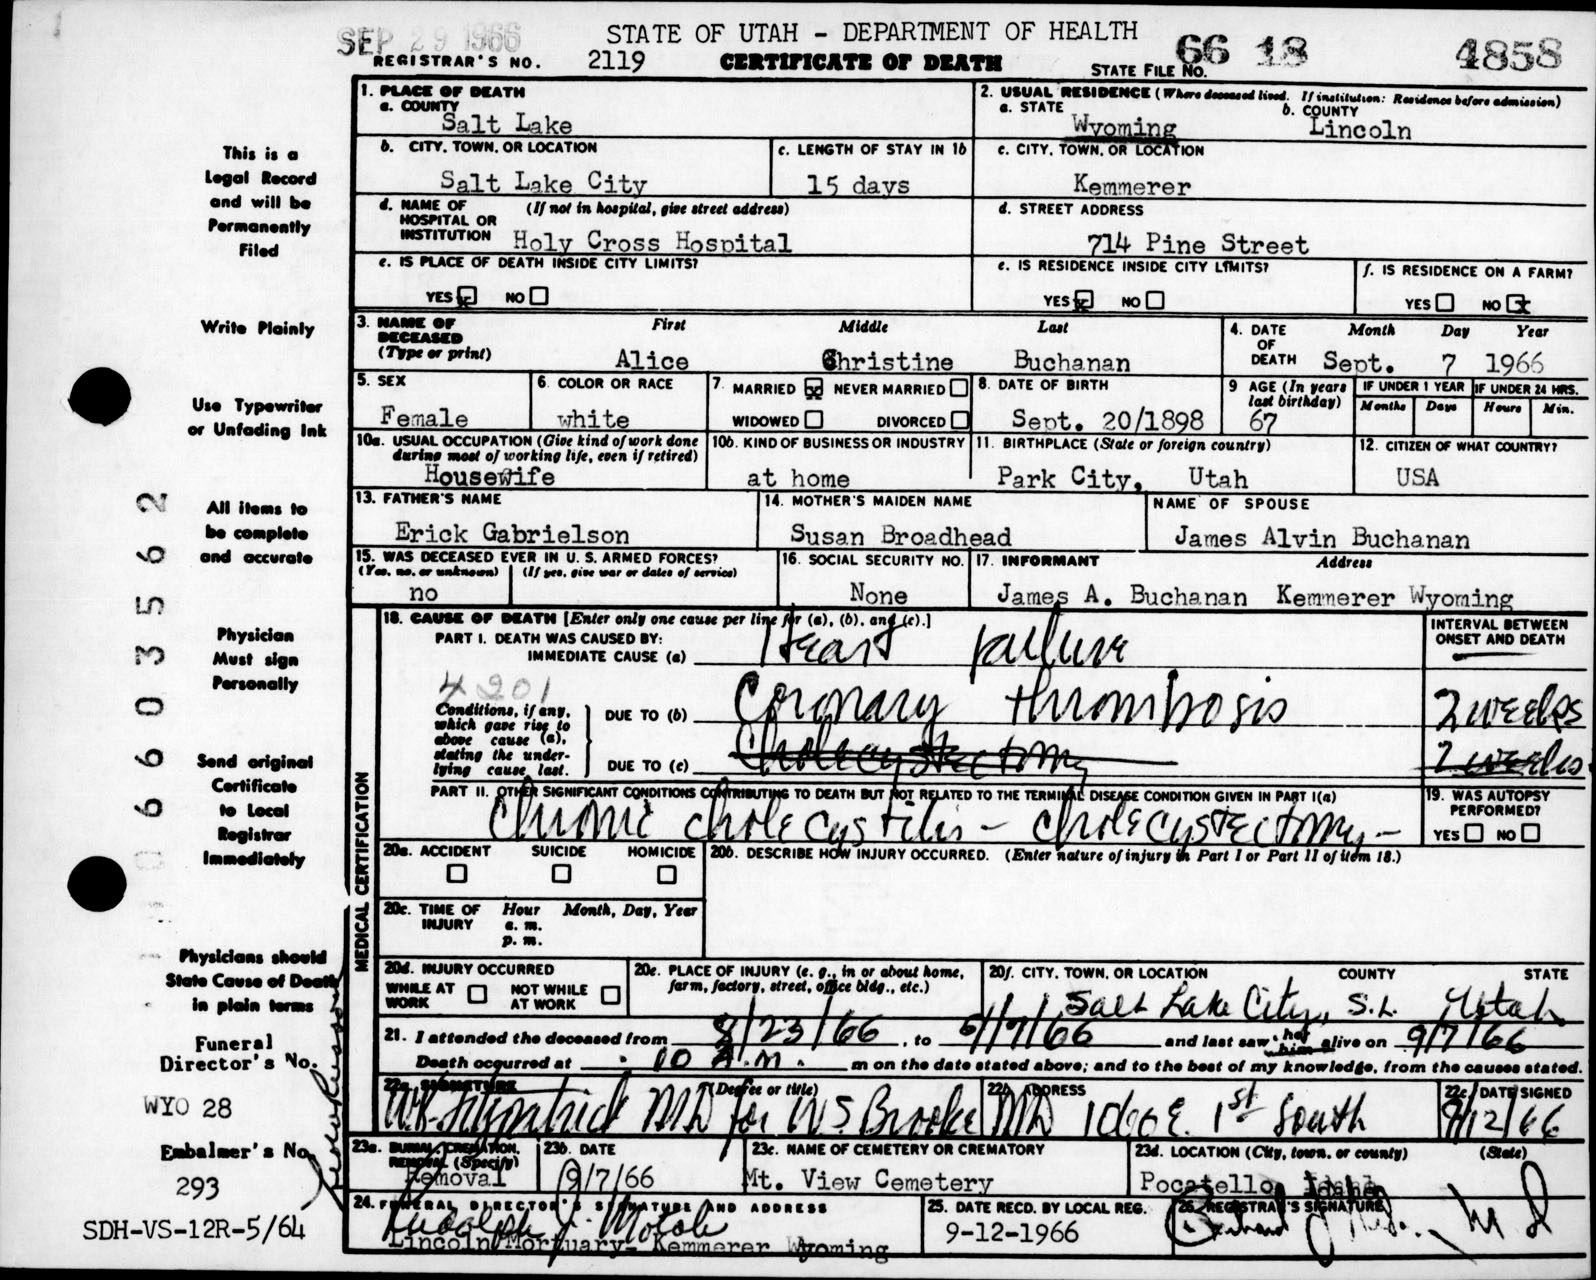 SEP 29 1966
STATE OF UTAH – DEPARTMENT OF HEALTH
REGISTRAR'S NO. 2119 CERTIFICATE OF DEATH
STATE FILE NO. 66 18 4858
1. PLACE OF DEATH
a. COUNTY
Salt Lake
2. USUAL RESIDENCE (Where deceased lived. If institution: Residence before admission)
a. STATE b. COUNTY
Wyoming Lincoln
b. CITY, TOWN, OR LOCATION
Salt Lake City
c. LENGTH OF STAY IN 1b
15 days
c. CITY, TOWN, OR LOCATION
Kemmerer
d. NAME OF HOSPITAL OR INSTITUTION (If not in hospital, give street address)
Holy Cross Hospital
d. STREET ADDRESS
714 Pine Street
e. IS PLACE OF DEATH INSIDE CITY LIMITS?
YES x NO
e. IS RESIDENCE INSIDE CITY LIMITS?
YES x NO
f. IS RESIDENCE ON A FARM?
YES NO x
3. NAME OF DECEASED (Type or print)
First Middle Last
Alice Christine Buchanan
4. DATE OF DEATH Month Day Year
Sept. 7 1966
5. SEX
Female
6. COLOR OR RACE
white
7. MARRIED x NEVER MARRIED
WIDOWED DIVORCED
8. DATE OF BIRTH
Sept. 20/1898
9 AGE (In years last birthday)
67
IF UNDER 1 YEAR IF UNDER 24 HRS.
Months Days Hours Min.
10a. USUAL OCCUPATION (Give kind of work done during most of working life, even if retired)
Housewife
10b. KIND OF BUSINESS OR INDUSTRY
at home
11. BIRTHPLACE (State or foreign country)
Park City, Utah
12. CITIZEN OF WHAT COUNTRY?
USA
13. FATHER'S NAME
Erick Gabrielson
14. MOTHER'S MAIDEN NAME
Susan Broadhead
NAME OF SPOUSE
James Alvin Buchanan
15. WAS DECEASED EVER IN U. S. ARMED FORCES?
(Yes, no, or unknown) (If yes, give war or dates of service)
no
16. SOCIAL SECURITY NO.
None
17. INFORMANT Address
James A. Buchanan Kemmerer Wyoming
MEDICAL CERTIFICATION
18. CAUSE OF DEATH [Enter only one cause per line for (a), (b), and (c).]
PART I. DEATH WAS CAUSED BY:
IMMEDIATE CAUSE (a) Heart failure
INTERVAL BETWEEN ONSET AND DEATH
4201
Conditions, if any, which gave rise to above cause (a), stating the underlying cause last.
DUE TO (b) Coronary thrombosis 2 weeks
DUE TO (c) Cholecystectomy 2 weeks
PART II. OTHER SIGNIFICANT CONDITIONS CONTRIBUTING TO DEATH BUT NOT RELATED TO THE TERMINAL DISEASE CONDITION GIVEN IN PART I(a)
Chronic cholecystitis – cholecystectomy –
19. WAS AUTOPSY PERFORMED?
YES NO
20a. ACCIDENT SUICIDE HOMICIDE
20b. DESCRIBE HOW INJURY OCCURRED. (Enter nature of injury in Part I or Part II of item 18.)
20c. TIME OF INJURY Hour Month, Day, Year
a. m.
p. m.
20d. INJURY OCCURRED
WHILE AT WORK NOT WHILE AT WORK
20e. PLACE OF INJURY (e. g., in or about home, farm, factory, street, office bldg., etc.)
20f. CITY, TOWN, OR LOCATION COUNTY STATE
Salt Lake City, S.L. Utah
21. I attended the deceased from 8/23/66, to 9/7/66 and last saw her him alive on 9/7/66
Death occurred at 10 A.m. m on the date stated above; and to the best of my knowledge, from the causes stated.
22a. SIGNATURE (Degree or title)
Fitzpatrick MD for WS Brooke MD
22b. ADDRESS
1060 E. 1st South
22c. DATE SIGNED
9/12/66
23a. BURIAL, CREMATION, REMOVAL (Specify)
Removal
23b. DATE
9/7/66
23c. NAME OF CEMETERY OR CREMATORY
Mt. View Cemetery
23d. LOCATION (City, town, or county) (State)
Pocatello Idaho
24. FUNERAL DIRECTOR'S SIGNATURE AND ADDRESS
Lincoln Mortuary- Kemmerer Wyoming
25. DATE RECD. BY LOCAL REG.
9-12-1966
26. REGISTRAR'S SIGNATURE
This is a
Legal Record
and will be
Permanently
Filed
Write Plainly
Use Typewriter
or Unfading Ink
All items to
be complete
and accurate
Physician
Must sign
Personally
Send original
Certificate
to Local
Registrar
Immediately
Physicians should
State Cause of Death
in plain terms
Funeral
Director's No.
WYO 28
Embalmer's No.
293
SDH-VS-12R-5/64
66003562